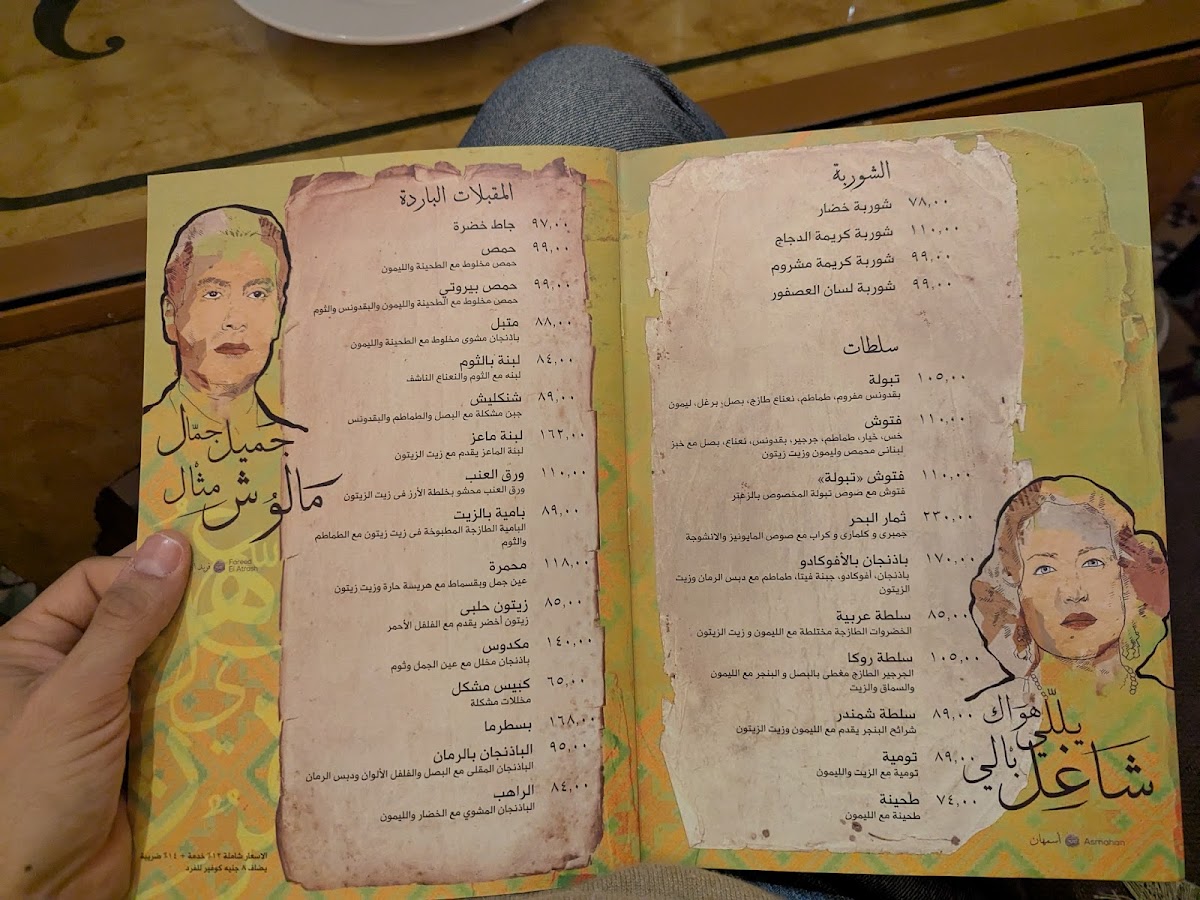 المقبلات الباردة
جاط خضرة ٩٧,٠٠
حمص ٩٩,٠٠
حمص مخلوط مع الطحينة والليمون
حمص بيروتي ٩٩,٠٠
حمص مخلوط مع الطحينة والليمون والبقدونس والثوم
متبل ٨٨,٠٠
باذنجان مشوى مخلوط مع الطحينة والليمون
لبنة بالثوم ٨٤,٠٠
لبنه مع الثوم والنعناع الناشف
شنكليش ٨٩,٠٠
جبن مشكلة مع البصل والطماطم والبقدونس
لبنة ماعز ١٦٢,٠٠
لبنة الماعز يقدم مع زيت الزيتون
ورق العنب ١١٠,٠٠
ورق العنب محشو بخلطة الأرز فى زيت الزيتون
بامية بالزيت ٨٩,٠٠
البامية الطازجة المطبوخة فى زيت زيتون مع الطماطم
والثوم
محمرة ١١٨,٠٠
عين جمل وبقسماط مع هريسة حارة وزيت زيتون
زيتون حلبى ٨٥,٠٠
زيتون أخضر يقدم مع الفلفل الأحمر
مكدوس ١٤٠,٠٠
باذنجان مخلل مع عين الجمل وثوم
كبيس مشكل ٦٥,٠٠
مخللات مشكلة
بسطرما ١٦٨,٠٠
الباذنجان بالرمان ٩٥,٠٠
الباذنجان المقلى مع البصل والفلفل الألوان ودبس الرمان
الراهب ٨٤,٠٠
الباذنجان المشوي مع الخضار والليمون
جميل جمّال
مالوش مثال
فريد
Fareed
El Atrash
الاسعار شاملة ١٢٪ خدمة + ١٤٪ ضريبة
يضاف ٨ جنيه كوفير للفرد
الشوربة
شوربة خضار ٧٨,٠٠
شوربة كريمة الدجاج ١١٠,٠٠
شوربة كريمة مشروم ٩٩,٠٠
شوربة لسان العصفور ٩٩,٠٠
سلطات
تبولة ١٠٥,٠٠
بقدونس مفروم، طماطم، نعناع طازج، بصل، برغل، ليمون
فتوش ١١٠,٠٠
خس، خيار، طماطم، جرجير، بقدونس، نعناع، بصل مع خبز
لبنانى محمص وليمون وزيت زيتون
فتوش «تبولة» ١١٠,٠٠
فتوش مع صوص تبولة المخصوص بالزعتر
ثمار البحر ٢٣٠,٠٠
جمبرى و كلمارى و كراب مع صوص المايونيز والانشوجة
باذنجان بالأفوكادو ١٧٠,٠٠
باذنجان، أفوكادو، جبنة فيتا، طماطم مع دبس الرمان وزيت
الزيتون
سلطة عربية ٨٥,٠٠
الخضروات الطازجة مختلطة مع الليمون و زيت الزيتون
سلطة روكا ١٠٥,٠٠
الجرجير الطازج مغطى بالبصل و البنجر مع الليمون
والسماق والزيت
سلطة شمندر ٨٩,٠٠
شرائح البنجر يقدم مع الليمون وزيت الزيتون
تومية ٨٩,٠٠
تومية مع الزيت والليمون
طحينة ٧٤,٠٠
طحينة مع الليمون
يللّي هواك
شاغل بالي
اسمهان Asmahan